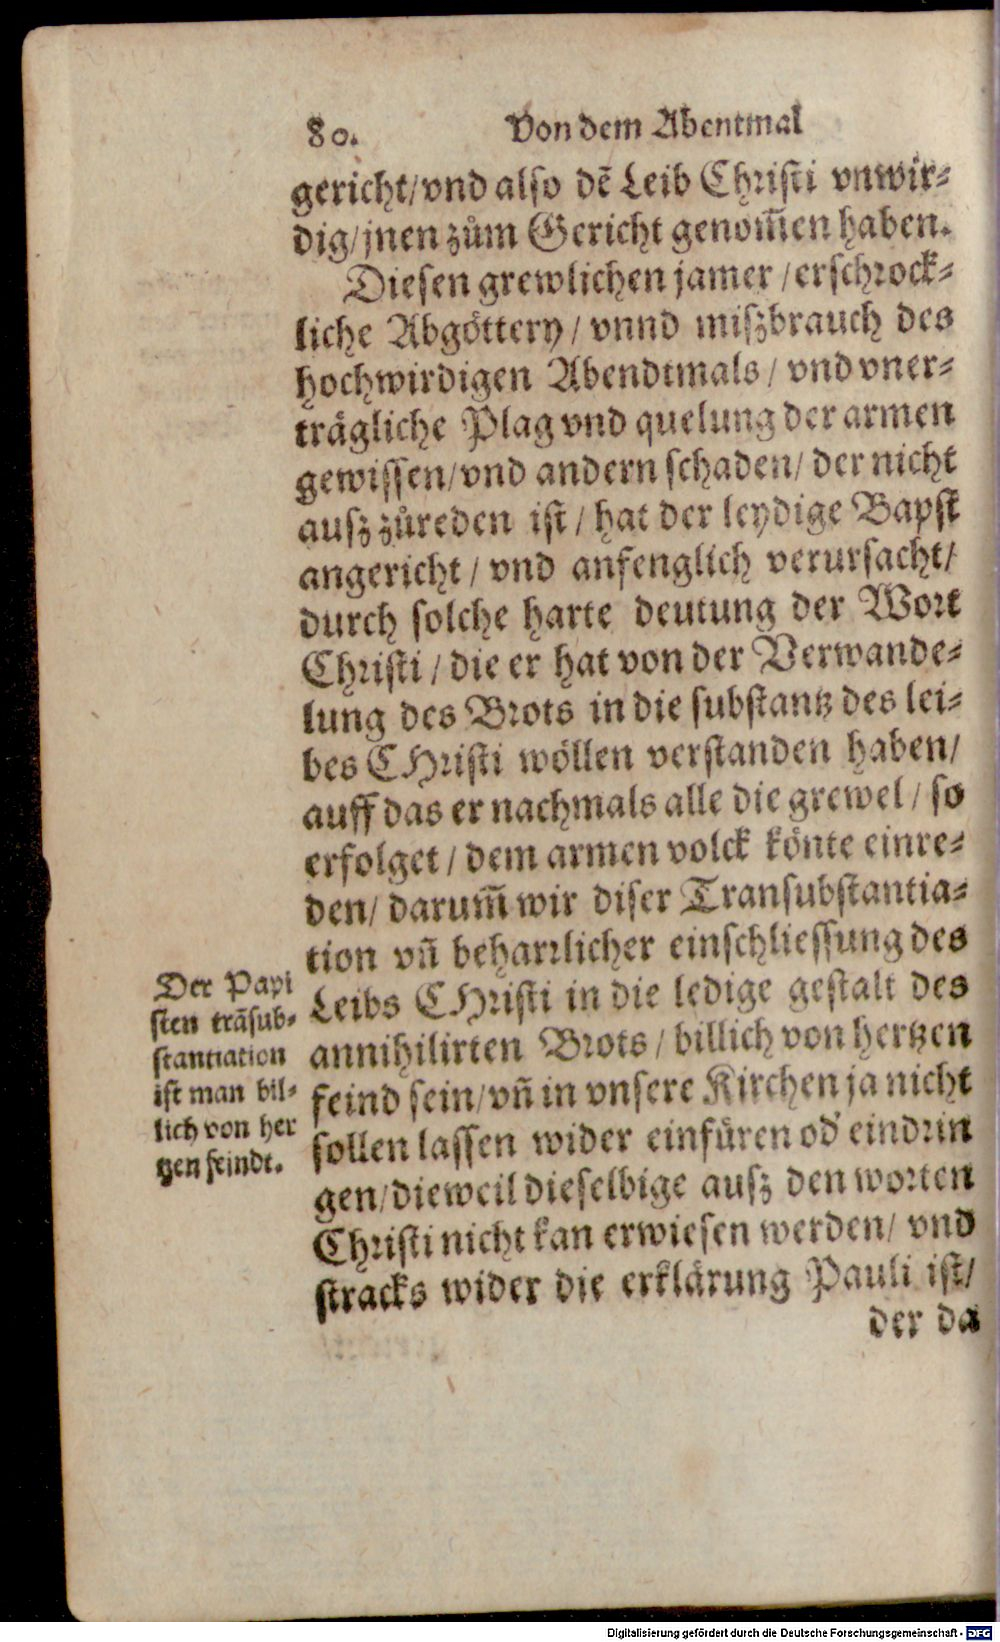 80. Von dem Abentmal
gericht/vnd also dē Leib Christi vnwir-
dig/jnen zům Gericht genom̄en haben.
Diesen grewlichen jamer/erschrock-
liche Abgöttery/vnnd miszbrauch des
hochwirdigen Abendtmals/vnd vner-
trägliche Plag vnd quelung der armen
gewissen/vnd andern schaden/der nicht
ausz zůreden ist/hat der leydige Bapst
angericht/vnd anfenglich verursacht/
durch solche harte deutung der Wort
Christi/die er hat von der Verwande-
lung des Brots in die substantz des lei-
bes CHristi wöllen verstanden haben/
auff das er nachmals alle die grewel/so
erfolget/dem armen volck könte einre-
den/darum̄ wir diser Transubstantia-
tion vn̄ beharrlicher einschliessung des
Leibs CHristi in die ledige gestalt des
annihilirten Brots/billich von hertzen
feind sein/vn̄ in vnsere Kirchen ja nicht
sollen lassen wider einfüren od' eindrin
gen/dieweil dieselbige ausz den worten
Christi nicht kan erwiesen werden/vnd
stracks wider die erklärung Pauli ist/
der da
Der Papi
sten trāsub-
stantiation
ist man bil-
lich von her
tzen feindt.
Digitalisierung gefördert durch die Deutsche Forschungsgemeinschaft - DFG